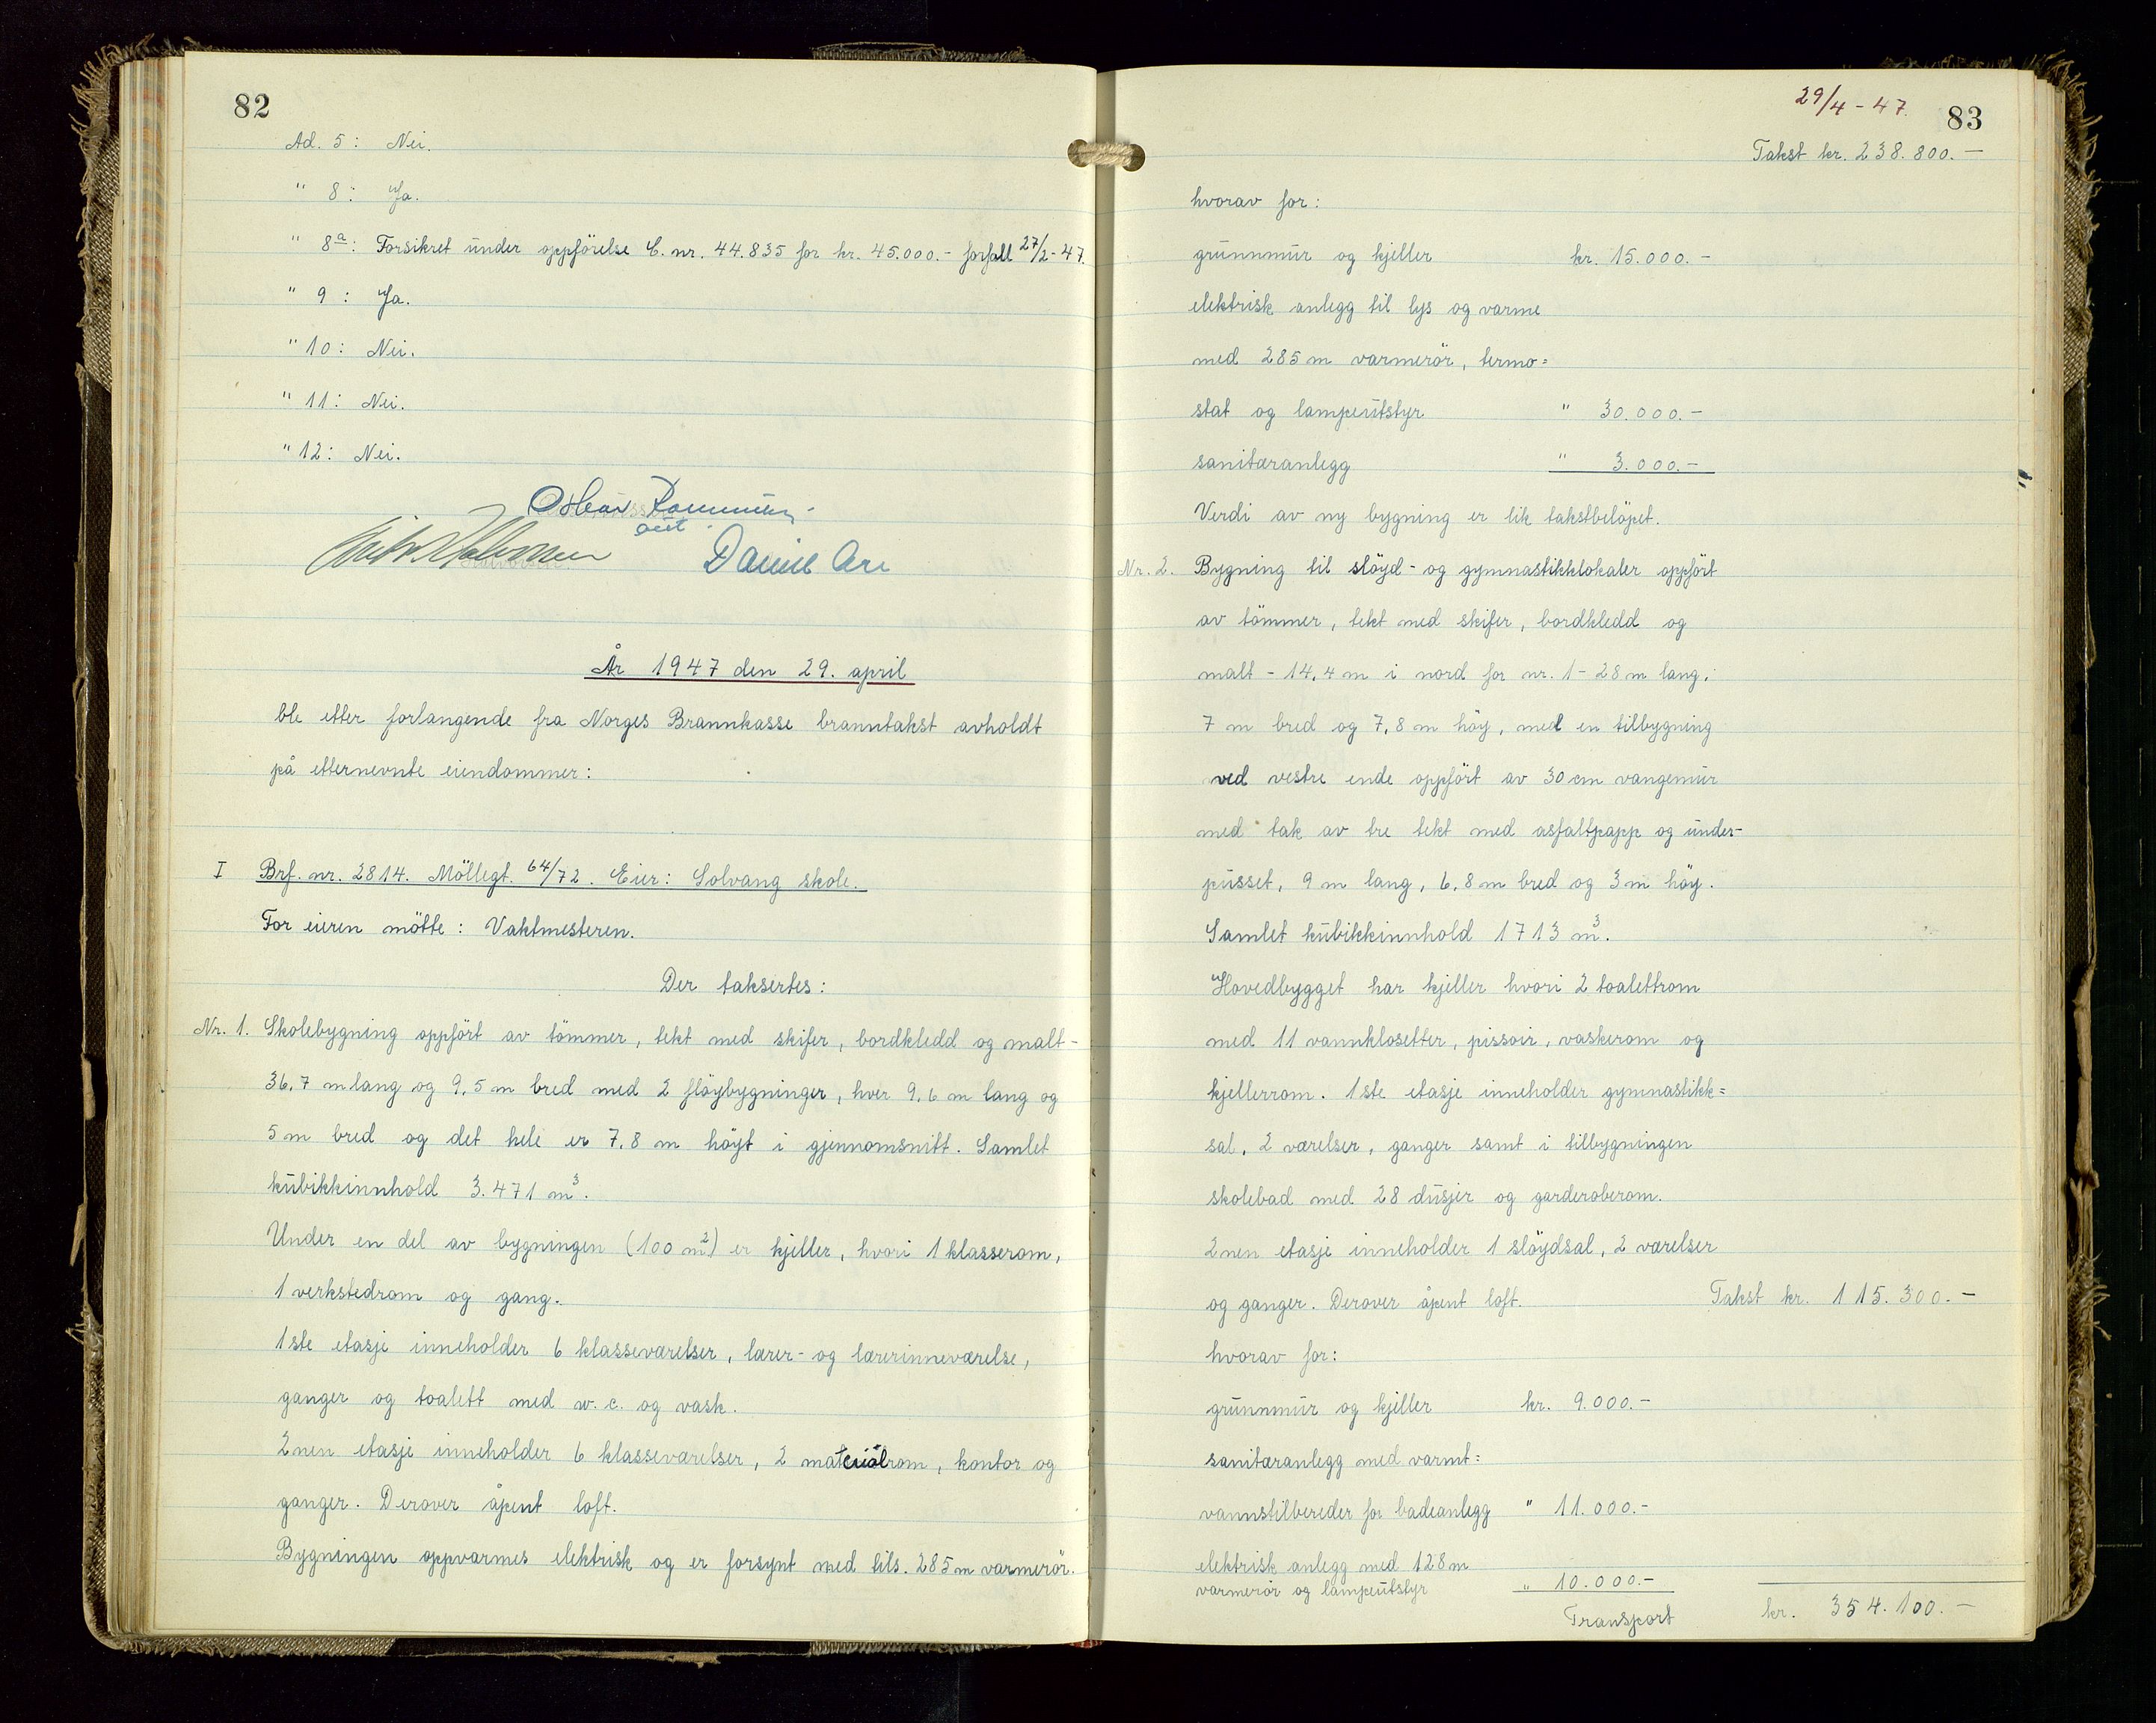 82
Ad. 5: Nei.
" 8: Ja.
" 8a: Forsikret under oppförelse C. nr. 44.835 for kr. 45.000.- forfall 27/2-47.
" 9: Ja.
" 10: Nei.
" 11: Nei.
" 12: Nei.
År 1947 den 29. april
ble etter forlangende fra Norges Brannkasse branntakst avholdt
på etternevnte eiendommer:
I Brf. nr. 2814. Möllegt. 64/72. Eier: Solvang skole.
For eieren mötte: Vaktmesteren.
Der taksertes:
Nr. 1. Skolebygning oppfört av tömmer, tekt med skifer, bordkledd og malt -
36,7 m lang og 9,5 m bred med 2 flöybygninger, hver 9,6 m lang og
5 m bred og det hele er 7,8 m höyt i gjennomsnitt. Samlet
kubikkinnhold 3.471 m3.
Under en del av bygningen (100 m2) er kjeller, hvori 1 klasserom,
1 verkstedrom og gang.
1ste etasje inneholder 6 klasseværelser, lærer- og lærerinneværelse,
ganger og toalett med w.c. og vask.
2nen etasje inneholder 6 klasseværelser, 2 materialrom, kontor og
ganger. Derover åpent loft.
Bygningen oppvarmes elektrisk og er forsynt med tils. 285 m varmerör.
29/4-47.
83
Takst kr. 238.800.-
hvorav for:
grunnmur og kjeller kr. 15.000.-
elektrisk anlegg til lys og varme
med 285 m varmerör, termo=
stat og lampeutstyr " 30.000.-
sanitæranlegg " 3.000.-
Verdi av ny bygning er lik takstbelöpet.
Nr. 2. Bygning til slöyd- og gymnastikklokaler oppfört
av tömmer, tekt med skifer, bordkledd og
malt - 14,4 m i nord for nr. 1 - 28 m lang,
7 m bred og 7,8 m höy, med en tilbygning
ved vestre ende oppfört av 30 cm vangemur
med tak av tre tekt med asfaltpapp og under-
pusset, 9 m lang, 6,8 m bred og 3 m höy.
Samlet kubikkinnhold 1713 m3.
Hovedbygget har kjeller hvori 2 toalettrom
med 11 vannklosetter, pissoir, vaskerom og
kjellerrom. 1ste etasje inneholder gymnastikk=
sal, 2 værelser, ganger samt i tilbygningen
skolebad med 28 dusjer og garderoberom.
2nen etasje inneholder 1 slöydsal, 2 værelser
og ganger. Derover åpent loft. Takst kr. 115.300.-
hvorav for:
grunnmur og kjeller kr. 9.000.-
sanitæranlegg med varmt=
vannstilbereder for badeanlegg " 11.000.-
elektrisk anlegg med 128 m
varmerör og lampeutstyr " 10.000.-
Transport kr. 354.100.-